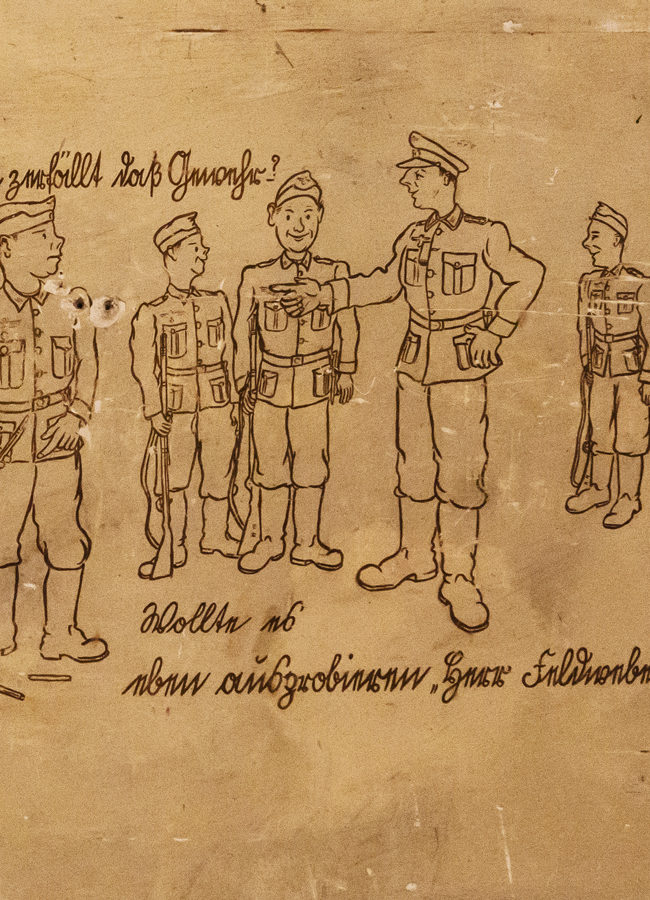 zerfällt daß Gewehr?
Wollte es
eben ausprobieren „Herr Feldwebe